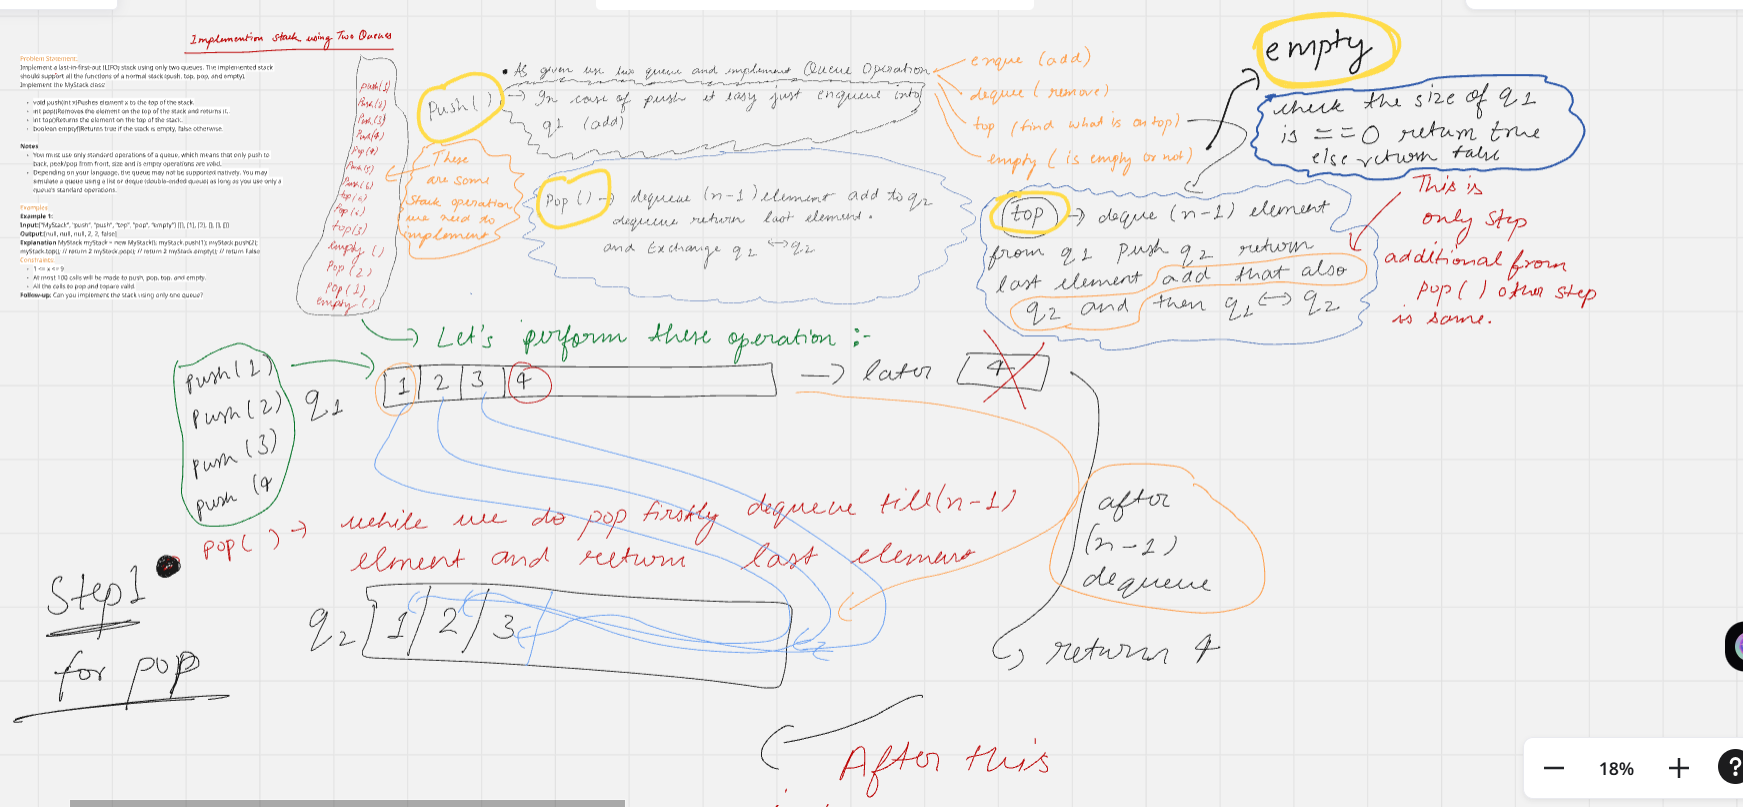 Implemention Stack using Two Queues
Problem Statement:
Implement a last-in-first-out (LIFO) stack using only two queues. The implemented stack
should support all the functions of a normal stack (push, top, pop, and empty).
Implement the MyStack class:
void push(int x)Pushes element x to the top of the stack.
int pop()Removes the element on the top of the stack and returns it.
int top()Returns the element on the top of the stack.
boolean empty()Returns true if the stack is empty, false otherwise.
Notes
You must use only standard operations of a queue, which means that only push to
back, peek/pop from front, size and is empty operations are valid.
Depending on your language, the queue may not be supported natively. You may
simulate a queue using a list or deque (double-ended queue) as long as you use only a
queue's standard operations.
Examples:
Example 1:
Input:["MyStack", "push", "push", "top", "pop", "empty"] [[], [1], [2], [], [], []]
Output:[null, null, null, 2, 2, false]
Explanation:MyStack myStack = new MyStack(); myStack.push(1); myStack.push(2);
myStack.top(); // return 2 myStack.pop(); // return 2 myStack.empty(); // return False
Constraints:
1 <= x <= 9
At most 100 calls will be made to push, pop, top, and empty.
All the calls to pop and top are valid.
Follow-up: Can you implement the stack using only one queue?
push(1)
Push(2)
Push(3)
Push(4)
Pop(4)
Push(5)
Push(6)
top(6)
Pop(6)
top(3)
empty()
Pop(2)
Pop(1)
empty()
These
are some
Stack operation
we need to
implement
• As given use two queue and implement Queue Operation
Push() → In case of push it easy just enqueue into
q1 (add)
Pop() → dequeue (n-1) element add to q2
dequeue return last element.
and Exchange q1 ↔ q2
enque (add)
deque (remove)
top (find what is on top)
empty (is empty or not)
empty
check the size of q1
is ==0 return true
else return false
top → deque (n-1) element
from q1 Push q2 return
last element add that also
q2 and then q1 ↔ q2
This is
only step
additional from
pop() other step
is same.
→ Let's perform these operation :-
push(1)
push(2)
push(3)
push(4
q1
1 2 3 4
→ later
4
pop() → while we do pop firstly dequeue till(n-1)
elment and return last element
Step1
for pop
q2
1 2 3
after
(n-1)
dequeue
return 4
After this
18%